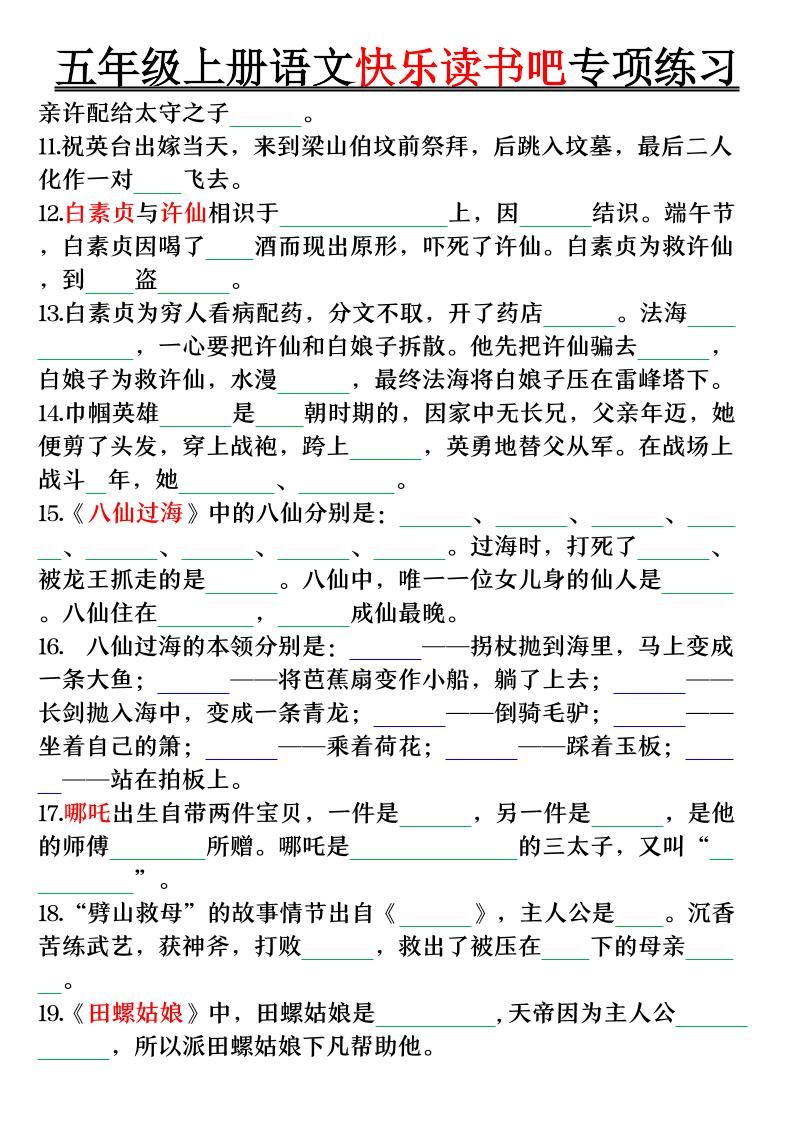 五年级上册语文快乐读书吧专项练习
亲许配给太守之子______。
11.祝英台出嫁当天，来到梁山伯坟前祭拜，后跳入坟墓，最后二人
化作一对____飞去。
12.白素贞与许仙相识于______________上，因______结识。端午节
，白素贞因喝了____酒而现出原形，吓死了许仙。白素贞为救许仙
，到____盗______。
13.白素贞为穷人看病配药，分文不取，开了药店______。法海____
________，一心要把许仙和白娘子拆散。他先把许仙骗去______，
白娘子为救许仙，水漫______，最终法海将白娘子压在雷峰塔下。
14.巾帼英雄______是____朝时期的，因家中无长兄，父亲年迈，她
便剪了头发，穿上战袍，跨上______，英勇地替父从军。在战场上
战斗__年，她________、________。
15.《八仙过海》中的八仙分别是：______、______、______、____
__、______、______、______、______。过海时，打死了______、
被龙王抓走的是______。八仙中，唯一一位女儿身的仙人是______
。八仙住在________，______成仙最晚。
16. 八仙过海的本领分别是：______——拐杖抛到海里，马上变成
一条大鱼；______——将芭蕉扇变作小船，躺了上去；______——
长剑抛入海中，变成一条青龙；______——倒骑毛驴；______——
坐着自己的箫；______——乘着荷花；______——踩着玉板；____
__——站在拍板上。
17.哪吒出生自带两件宝贝，一件是______，另一件是______，是他
的师傅________所赠。哪吒是______________的三太子，又叫“__
________”。
18.“劈山救母”的故事情节出自《______》，主人公是____。沉香
苦练武艺，获神斧，打败______，救出了被压在____下的母亲____
__。
19.《田螺姑娘》中，田螺姑娘是__________,天帝因为主人公______
______，所以派田螺姑娘下凡帮助他。